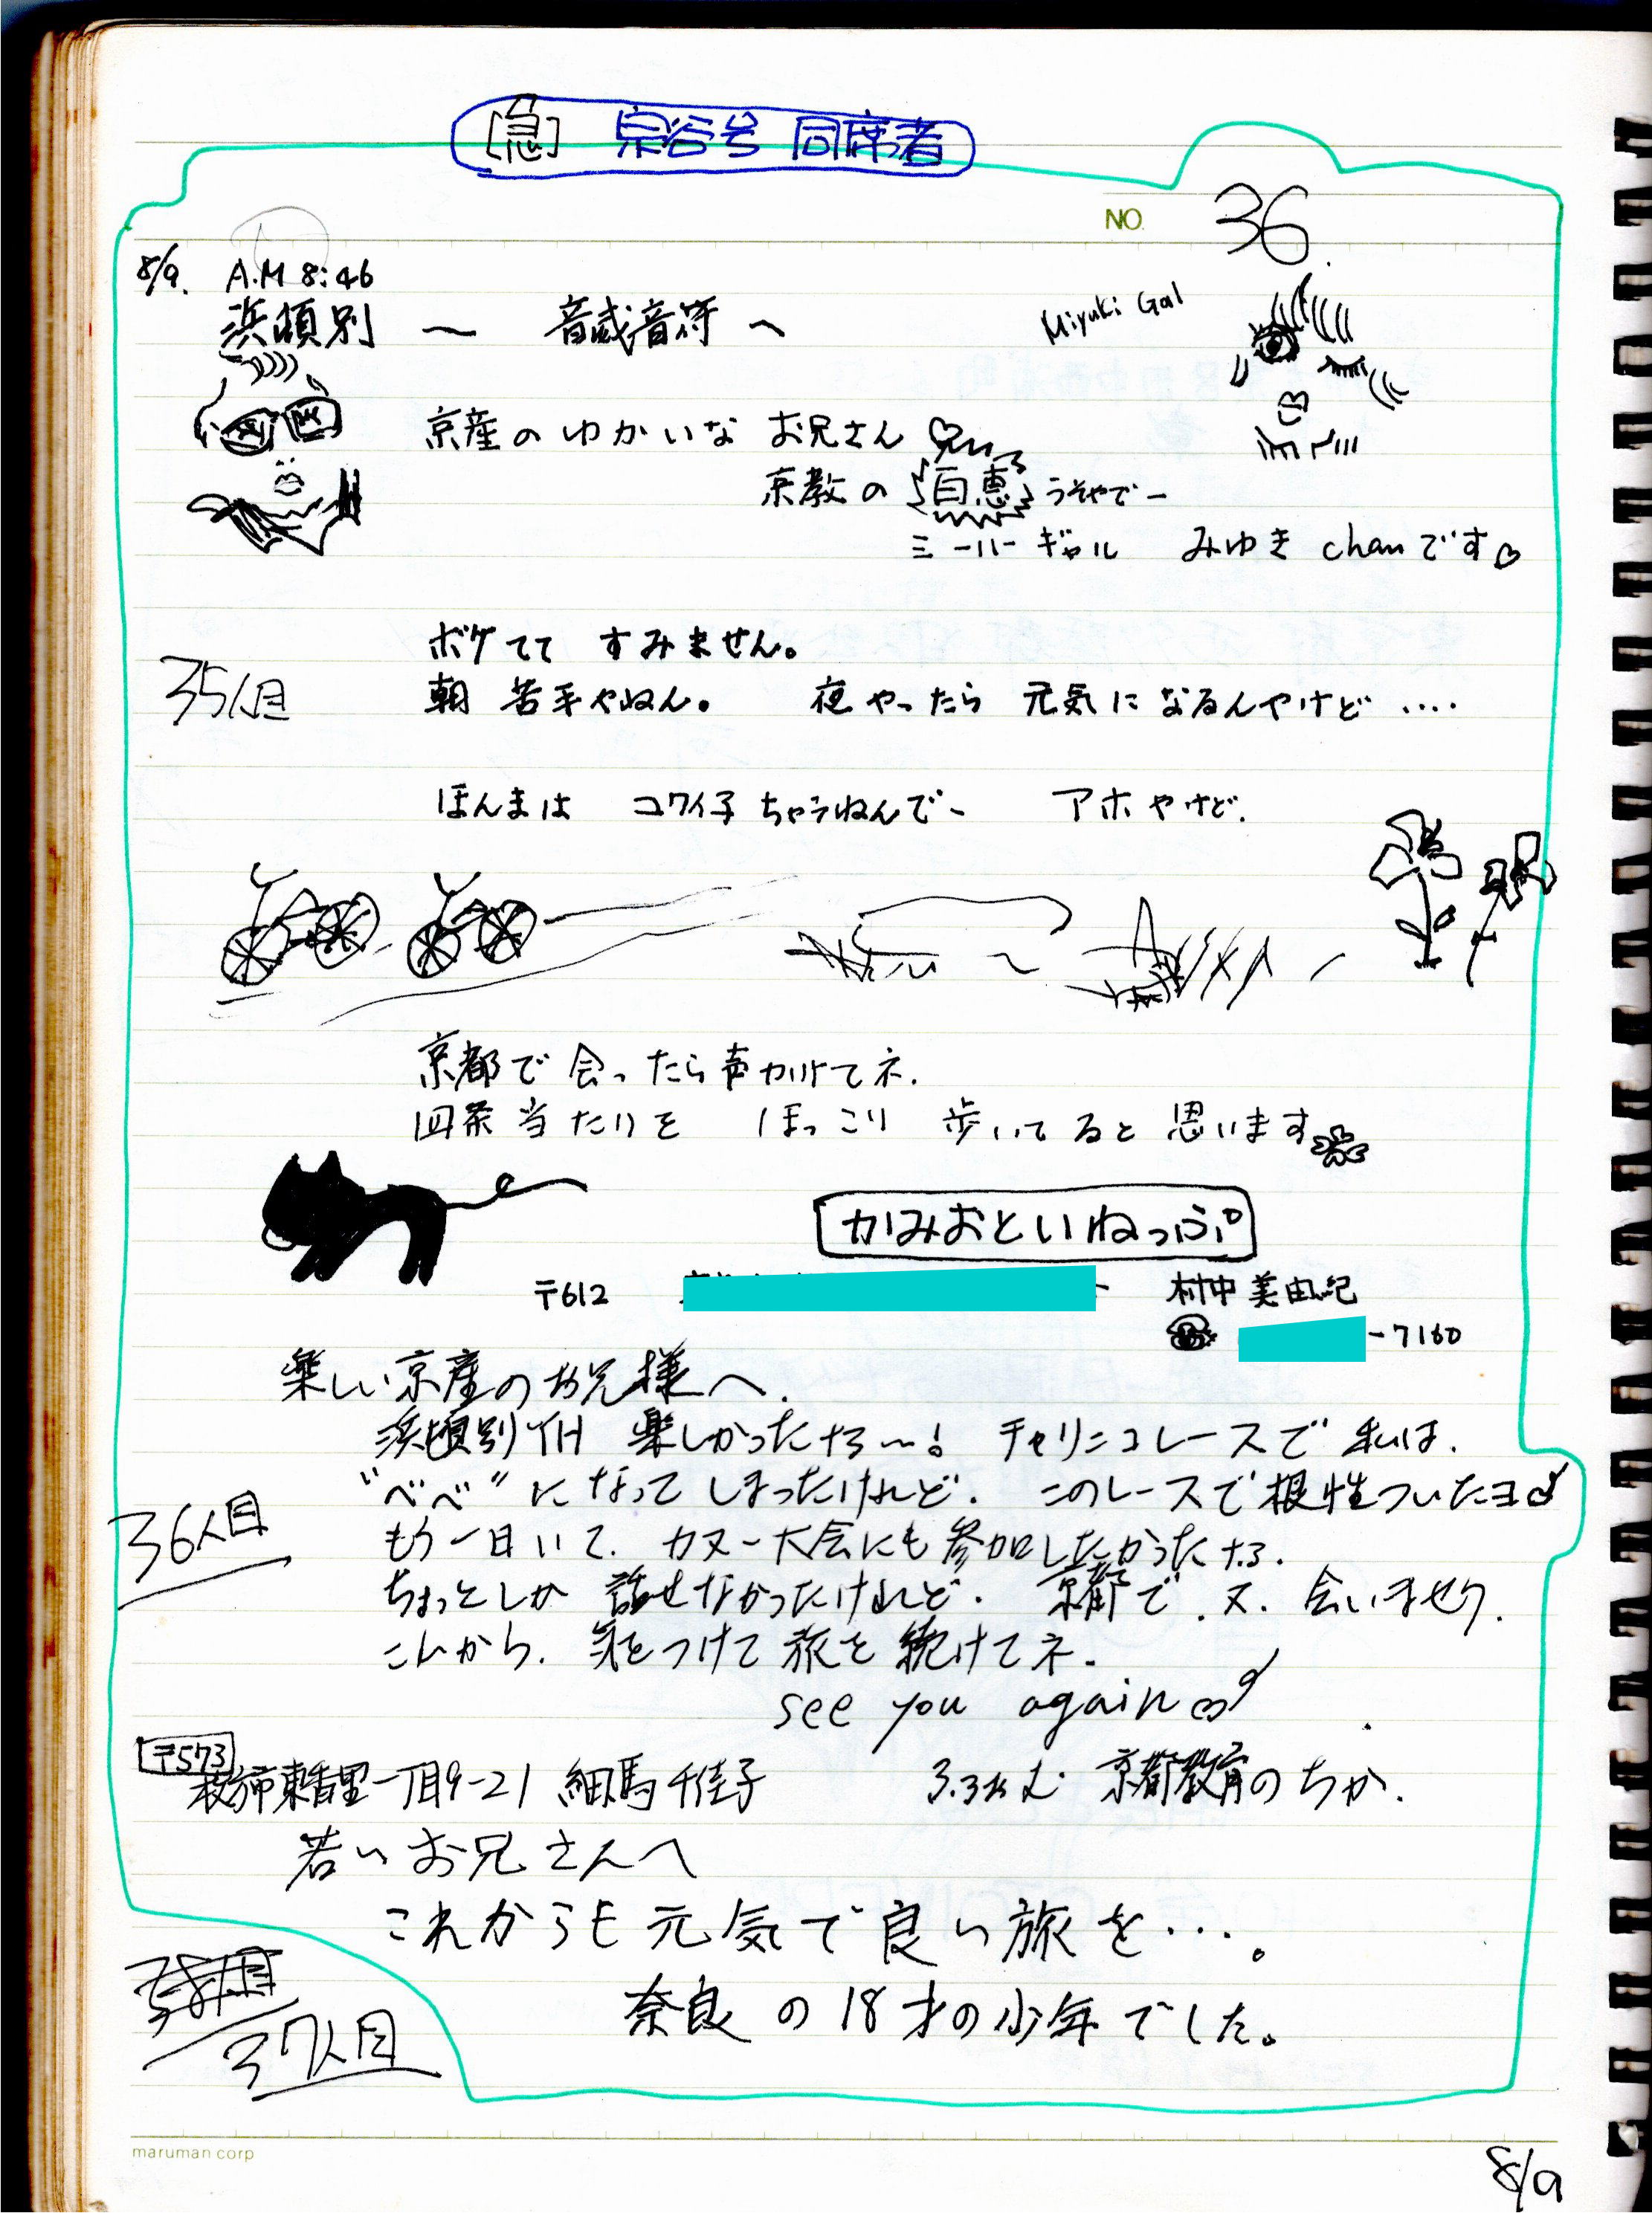 [急] 宗谷号 同席者
NO. 36
8/9. A.M 8:46
浜頓別 〜 音威音符へ
Miyuki Gal
京産のゆかいな お兄さん♡
京教の 百恵 うそやでー
ミーハーギャル みゆき chanです♡
ボケてて すみません。
35人目
朝 苦手やねん。 夜やったら 元気になるんやけど ‥‥
ほんまは コワイ子ちゃうねんでー アホやけど.
京都で会ったら声かけてネ.
四条当たりを ほっこり 歩いてると思います
かみおといねっぷ
〒612 村中美由紀
-7160
楽しい京産のお兄様へ.
浜頓別YH 楽しかったナ〜! チャリンコレースで私は.
"べべ"になってしまったけれど. このレースで根性ついたヨ
36人目
もう一日いて. カヌー大会にも参加したかったナ.
ちょっとしか 話せなかったけれど. 京都で.又.会いませう.
これから.気をつけて旅を続けてネ.
see you again
〒573
枚方市東香里一丁目9-21 細馬千佳子 京都教育のちか.
若いお兄さんへ
これからも元気で良い旅を‥。
奈良の18才の少年でした。
37人目
maruman corp
8/9